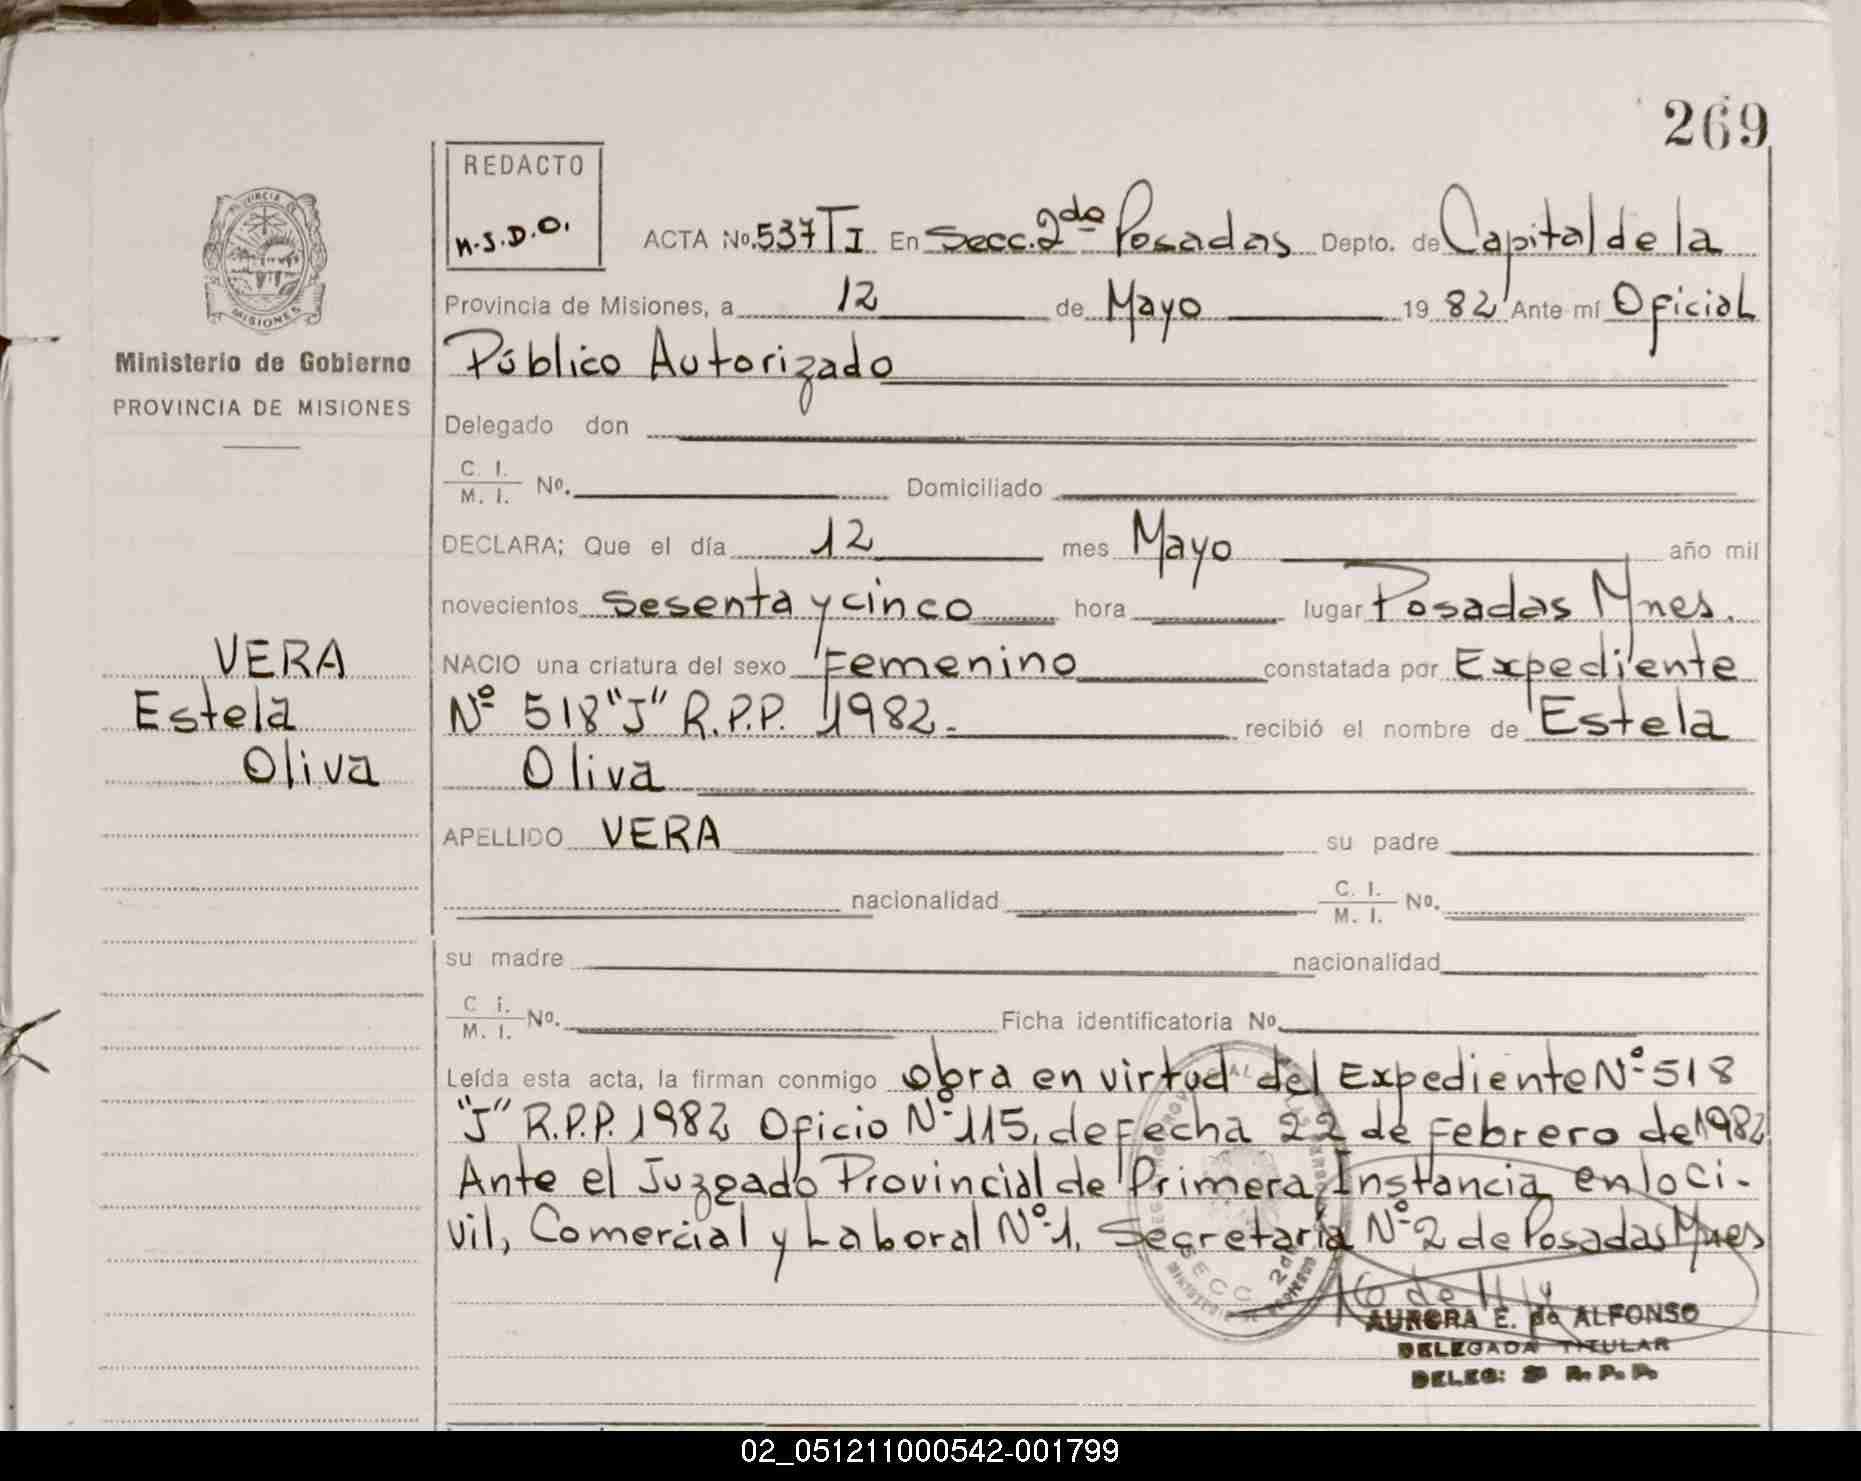 269
REDACTO
M.S.D.O.
ACTA No. 537 TI En Secc. 2da Posadas Depto. de Capital de la
Provincia de Misiones, a 12 de Mayo 1982 Ante mí Oficial
Ministerio de Gobierno
PROVINCIA DE MISIONES
Público Autorizado
Delegado don
C. I.
M. I. No. Domiciliado
DECLARA; Que el día 12 mes Mayo año mil
novecientos Sesenta y cinco hora lugar Posadas Mnes.
VERA
Estela
Oliva
NACIO una criatura del sexo Femenino constatada por Expediente
Nº 518 "J" R.P.P. 1982.- recibió el nombre de Estela
Oliva
APELLIDO VERA su padre
nacionalidad C. I.
M. I. No.
su madre nacionalidad
C i.
M. I. No. Ficha identificatoria No.
Leída esta acta, la firman conmigo obra en virtud del Expediente Nº 518
"J" R.P.P. 1982 Oficio Nº 115, de Fecha 22 de Febrero de 1982
Ante el Juzgado Provincial de Primera Instancia en lo Ci-
vil, Comercial y Laboral Nº 1, Secretaria Nº 2 de Posadas Mnes
AURORA E. de ALFONSO
DELEGADA TITULAR
DELEG: 2ª R.P.P.
02_051211000542-001799